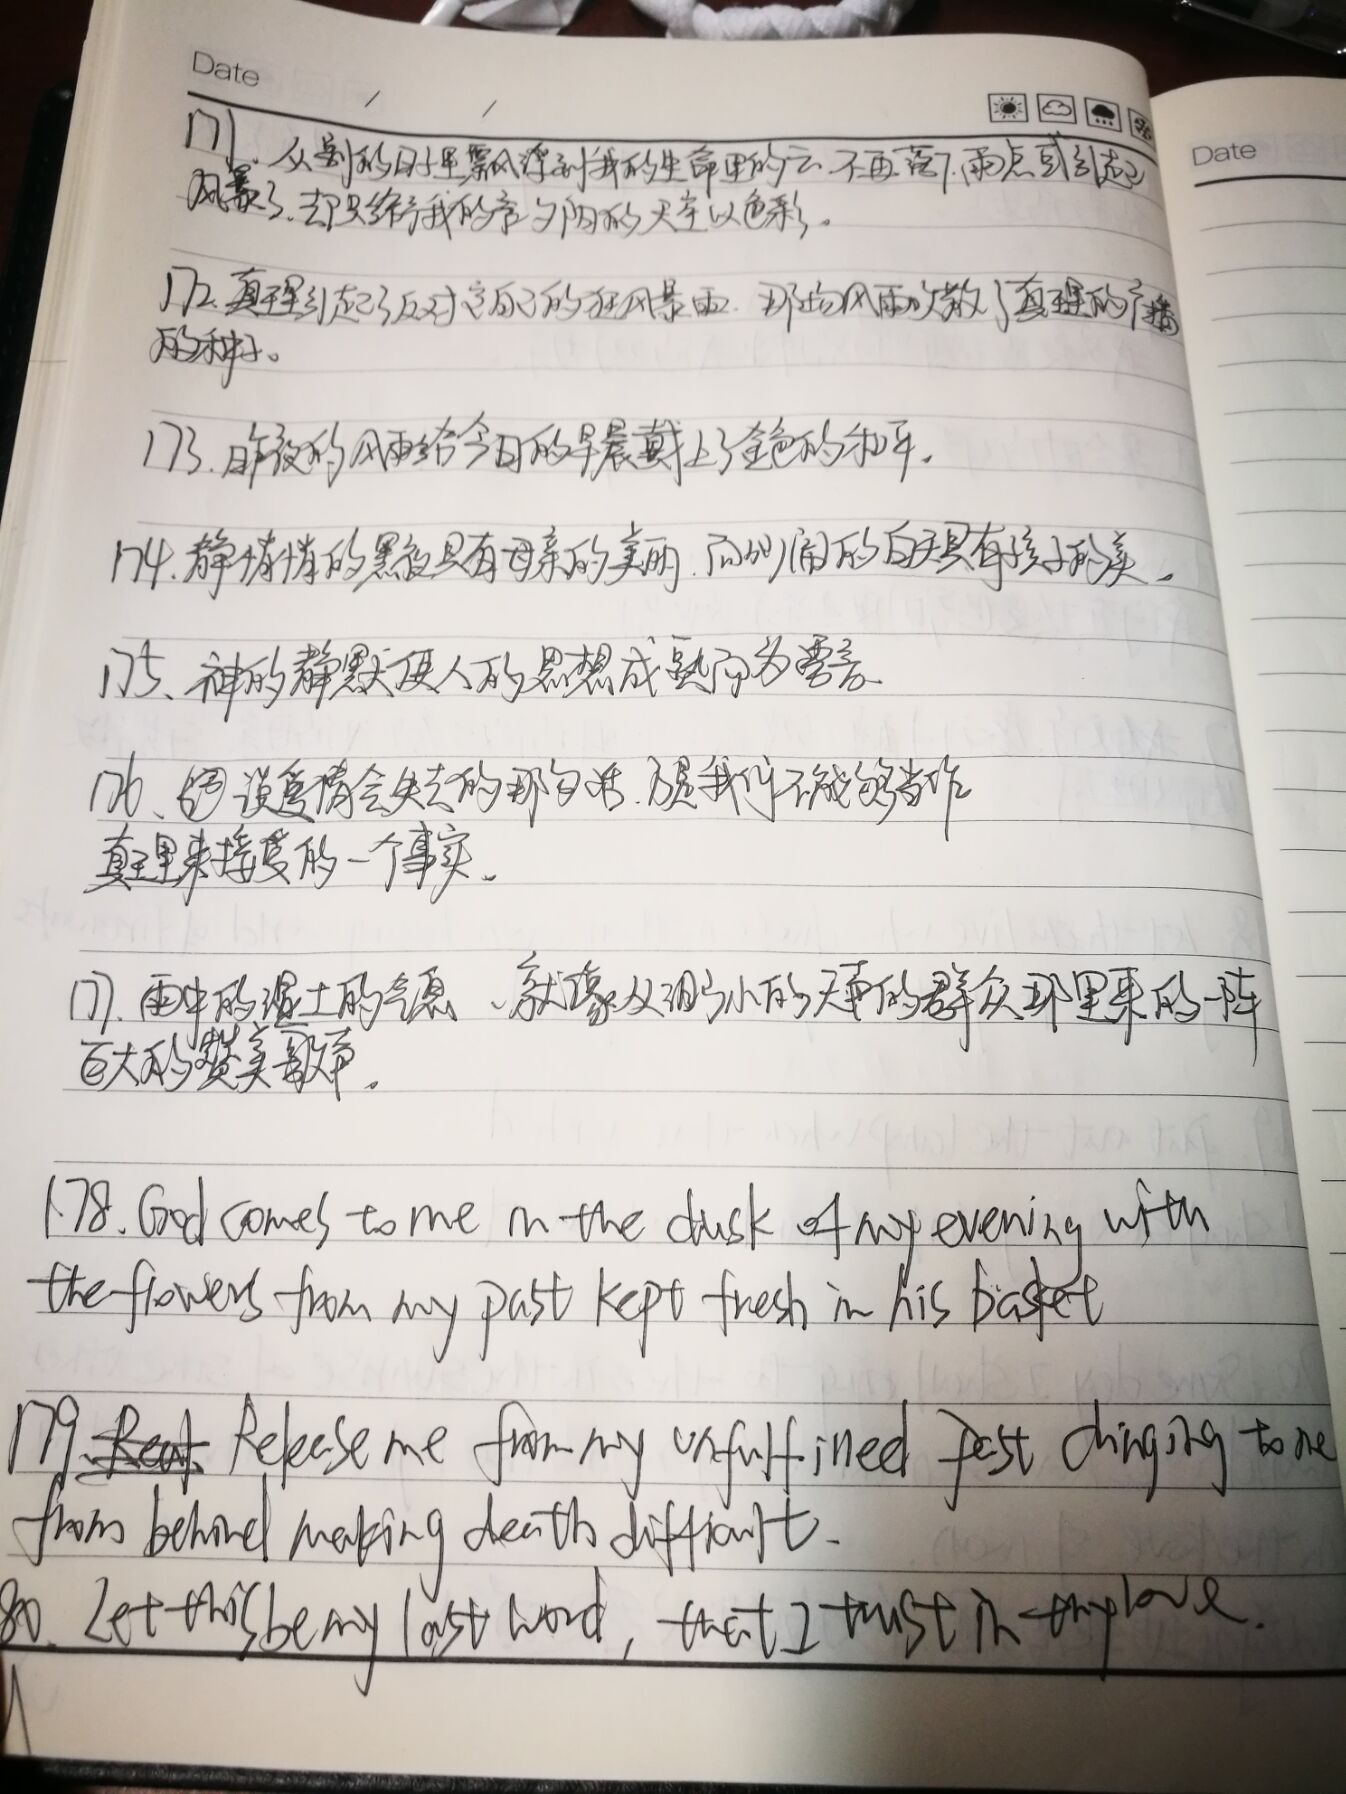 Date
171. 从别的日子里飘浮到我的生命里的云,不再落下雨点或引起
风暴了、却只给予我的夕阳的天空以色彩。
172. 真理引起了反对它自己的狂风暴雨,那场风雨吹散了真理的广播
的种子。
173. 昨夜的风雨给今日的早晨戴上了金色的和平。
174. 静悄悄的黑夜具有母亲的美丽,而吵闹的白天具有孩子的美。
175、神的静默使人的思想成熟而为语言。
176、说爱情会失去的那句话,乃是我们不能够当作
真理来接受的一个事实。
177. 雨中的湿土的气息、就像从渺小的无声的群众那里来的一阵
巨大的赞美歌声。
178. God comes to me in the dusk of my evening with
the flowers from my past kept fresh in his basket
179. Release me from my unfulfilleed past clinging to me
from behind making death difficult.
80. Let this be my last word, that I trust in thy love.
Date